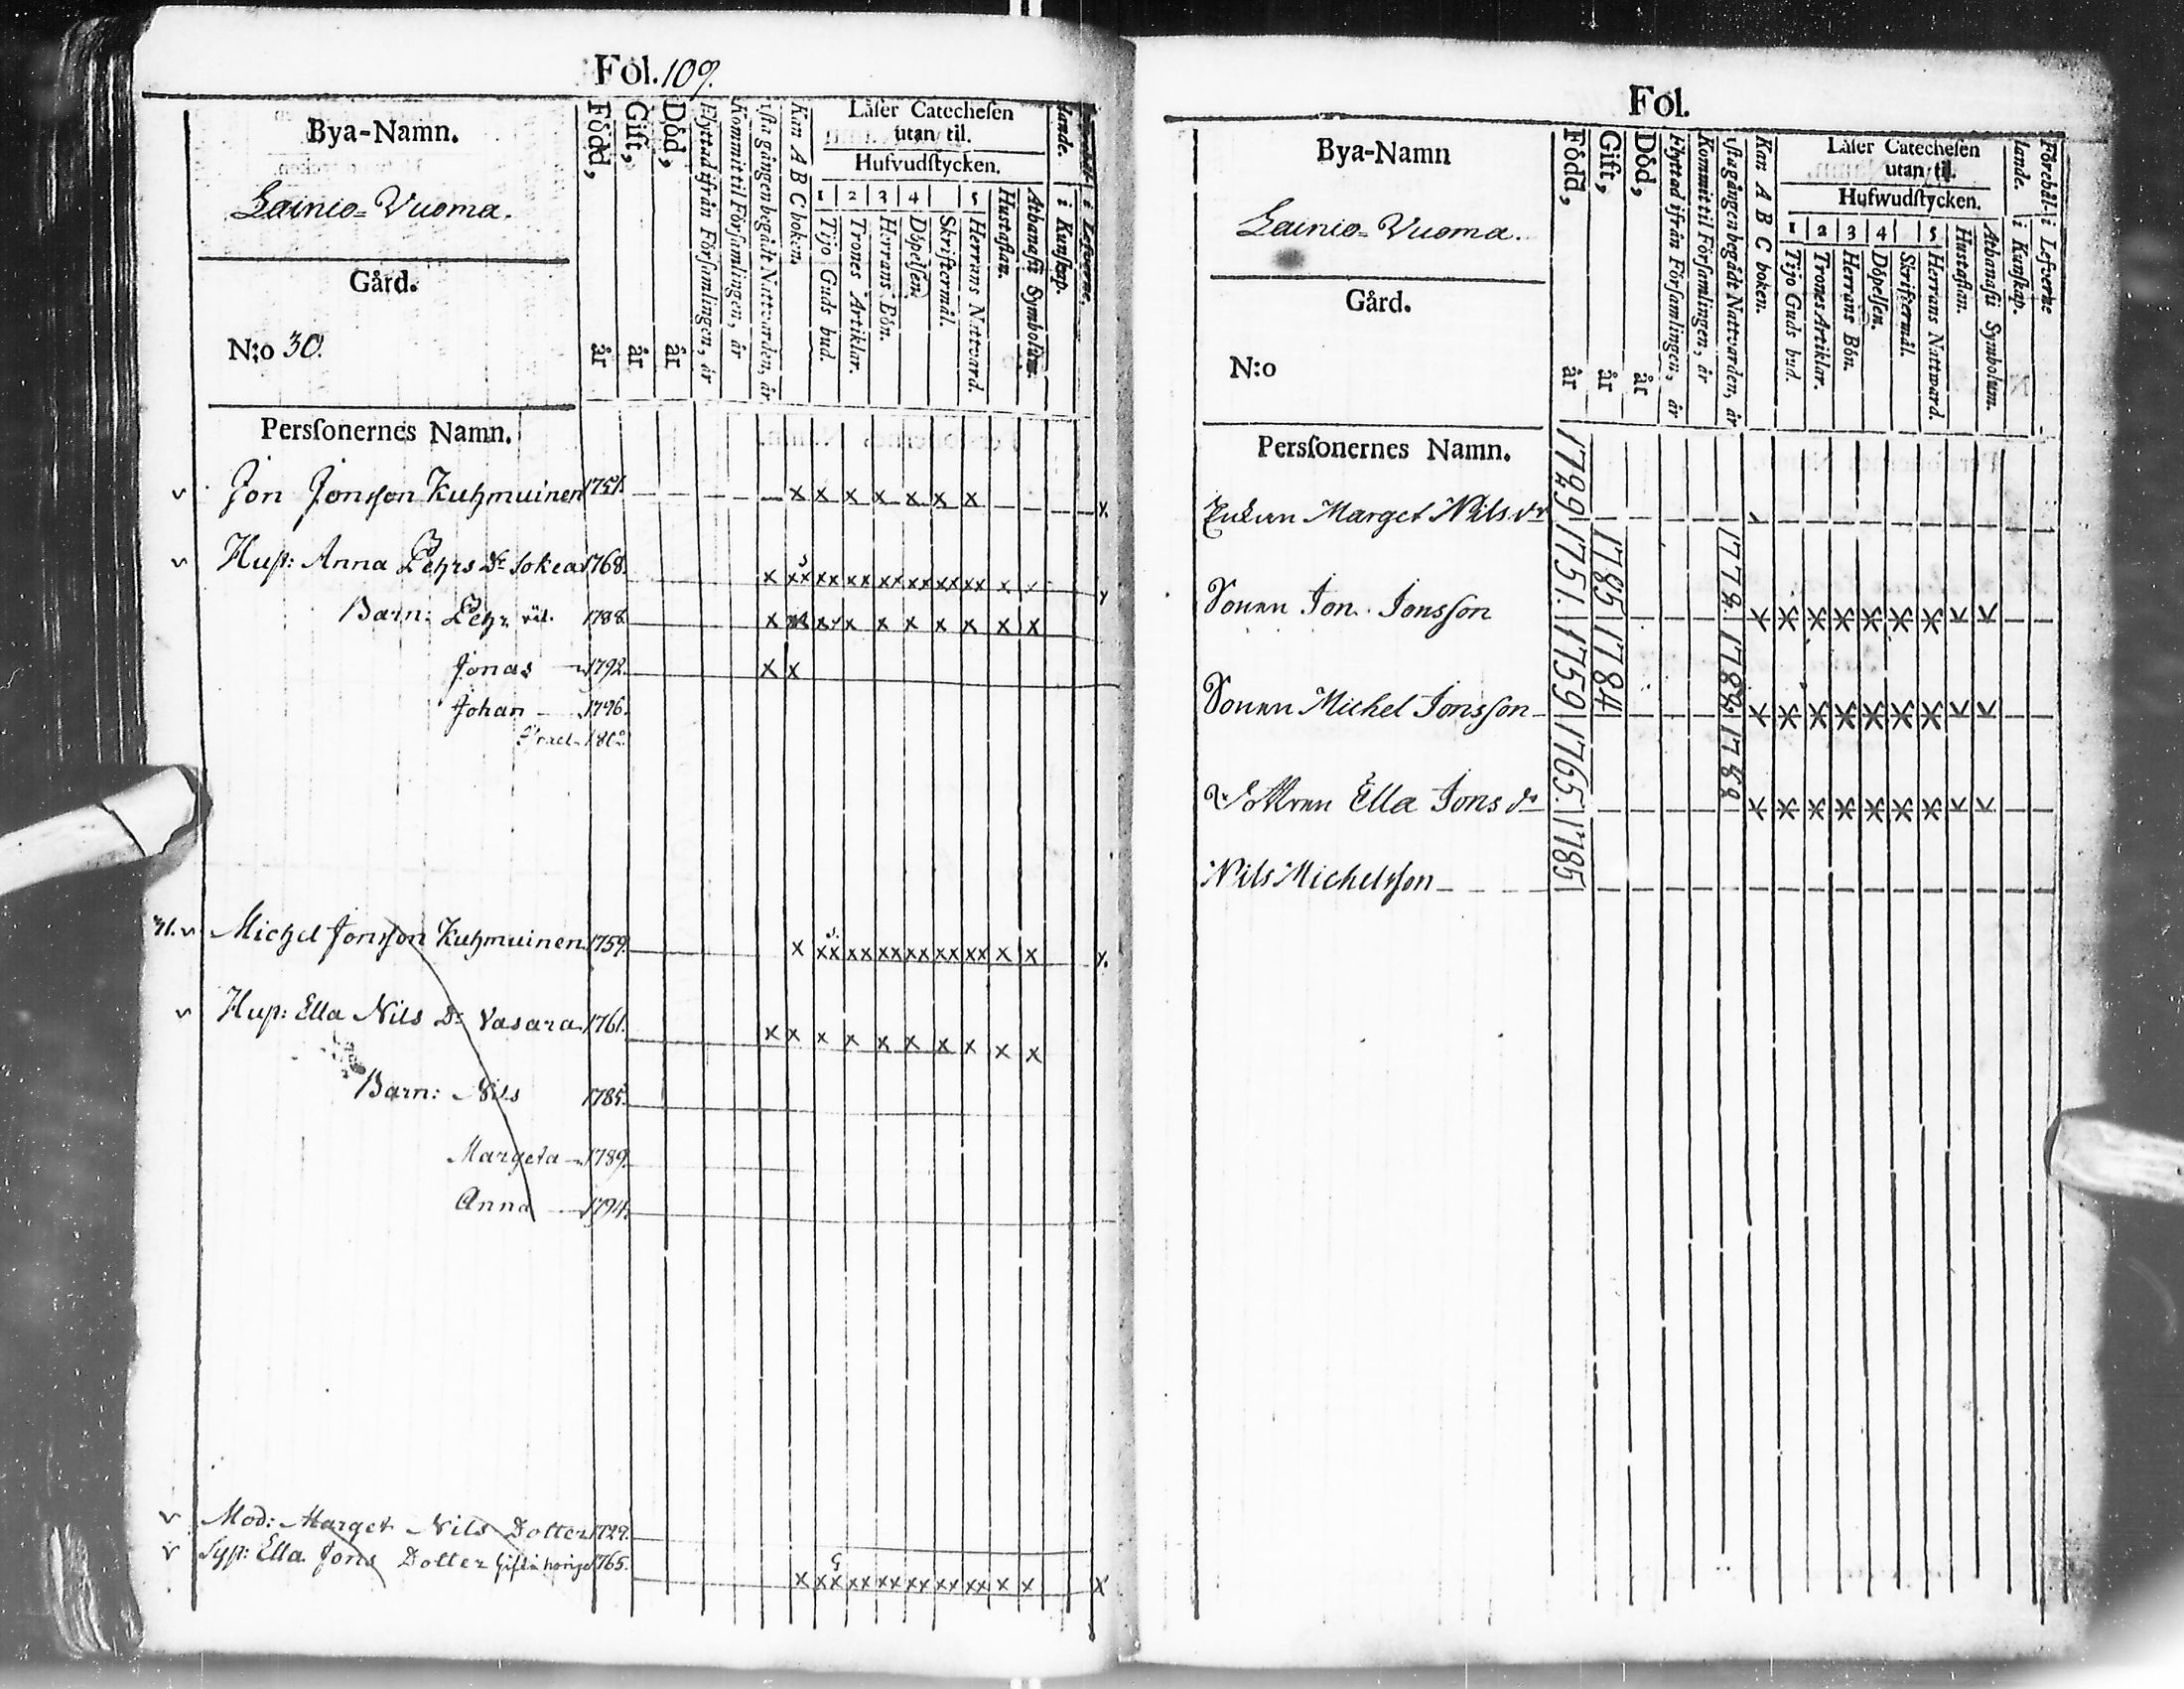 Fol. 109.
Bya-Namn.
Lainio=Vuoma.
Gård.
N:o 30.
Persſonernes Namn.
Född, år
Gift, år
Död, år
Flyttad ifrån Församlingen, år
Kommit til Församlingen, år
1sta gången begådt Nattvarden, år
Kan A B C boken.
Läſer Catecheſen utan til.
Hufvudſtycken.
1 2 3 4 5
Tijo Guds bud.
Trones Artiklar.
Herrans Bön.
Döpelſen.
Skriftermål.
Herrans Nattvard.
Huſtaflan.
Athanaſii Symbolum.
lande. i Kunſkap.
i Lefverne.
v Jon Jonsſon Kuhmuinen 1751. x x x x x x x
v Huſt: Anna Pehrs Dr Sokea 1768. x xx xx xx xx xx xx xx x x
Barn: Pehr 1788. x x x x x x x x x
Jonas 1792. x x
Johan 1796.
Israel 180
v Michel Jonsſon Kuhmuinen 1759. x xx xx xx xx xx xx x x
v Huſt: Ella Nils Dr Vasara 1761. x x x x x x x x x x
Barn: Nils 1785.
Margeta 1789.
Anna 1794.
v Mod: Marget Nils Dotter 1729.
v Syſt: Ella Jons Dotter 1765. x xx xx xx xx xx xx x x x
Fol.
Bya-Namn
Lainio=Vuoma.
Gård.
N:o
Persſonernes Namn.
Född, år
Gift, år
Död, år
Flyttad ifrån Förſamlingen, år
Kommit til Förſamlingen, år
1ſta gången begådt Nattvarden, år
Kan A B C boken.
Läſer Catecheſen utan til.
Hufwudſtycken.
1 2 3 4 5
Tijo Guds bud.
Trones Artiklar.
Herrans Bön.
Döpelſen.
Skriftermål.
Herrans Nattward.
Huſtaflan.
Athanaſii Symbolum.
Förehål-lande. i Kunſkap.
i Lefverne
Enkan Marget Nils dr 1729
Sonen Jon Jonsſon 1751. 1785
Sonen Michel Jonsſon 1759 1784
Dottren Ella Jons dr 1765.
Nils Michelsſon 1785